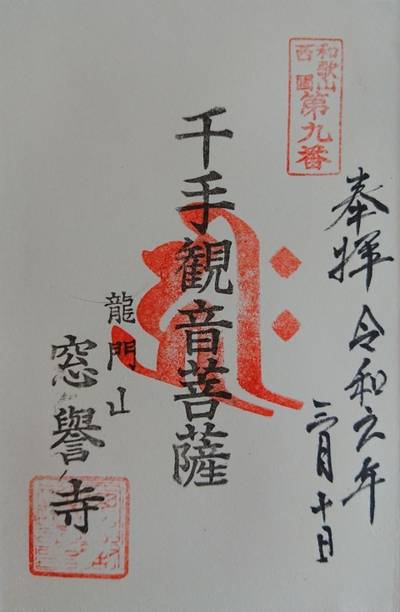 和歌山
西国
第九番
奉拝 令和六年
三月十日
千手観音菩薩
龍門山
窓譽寺